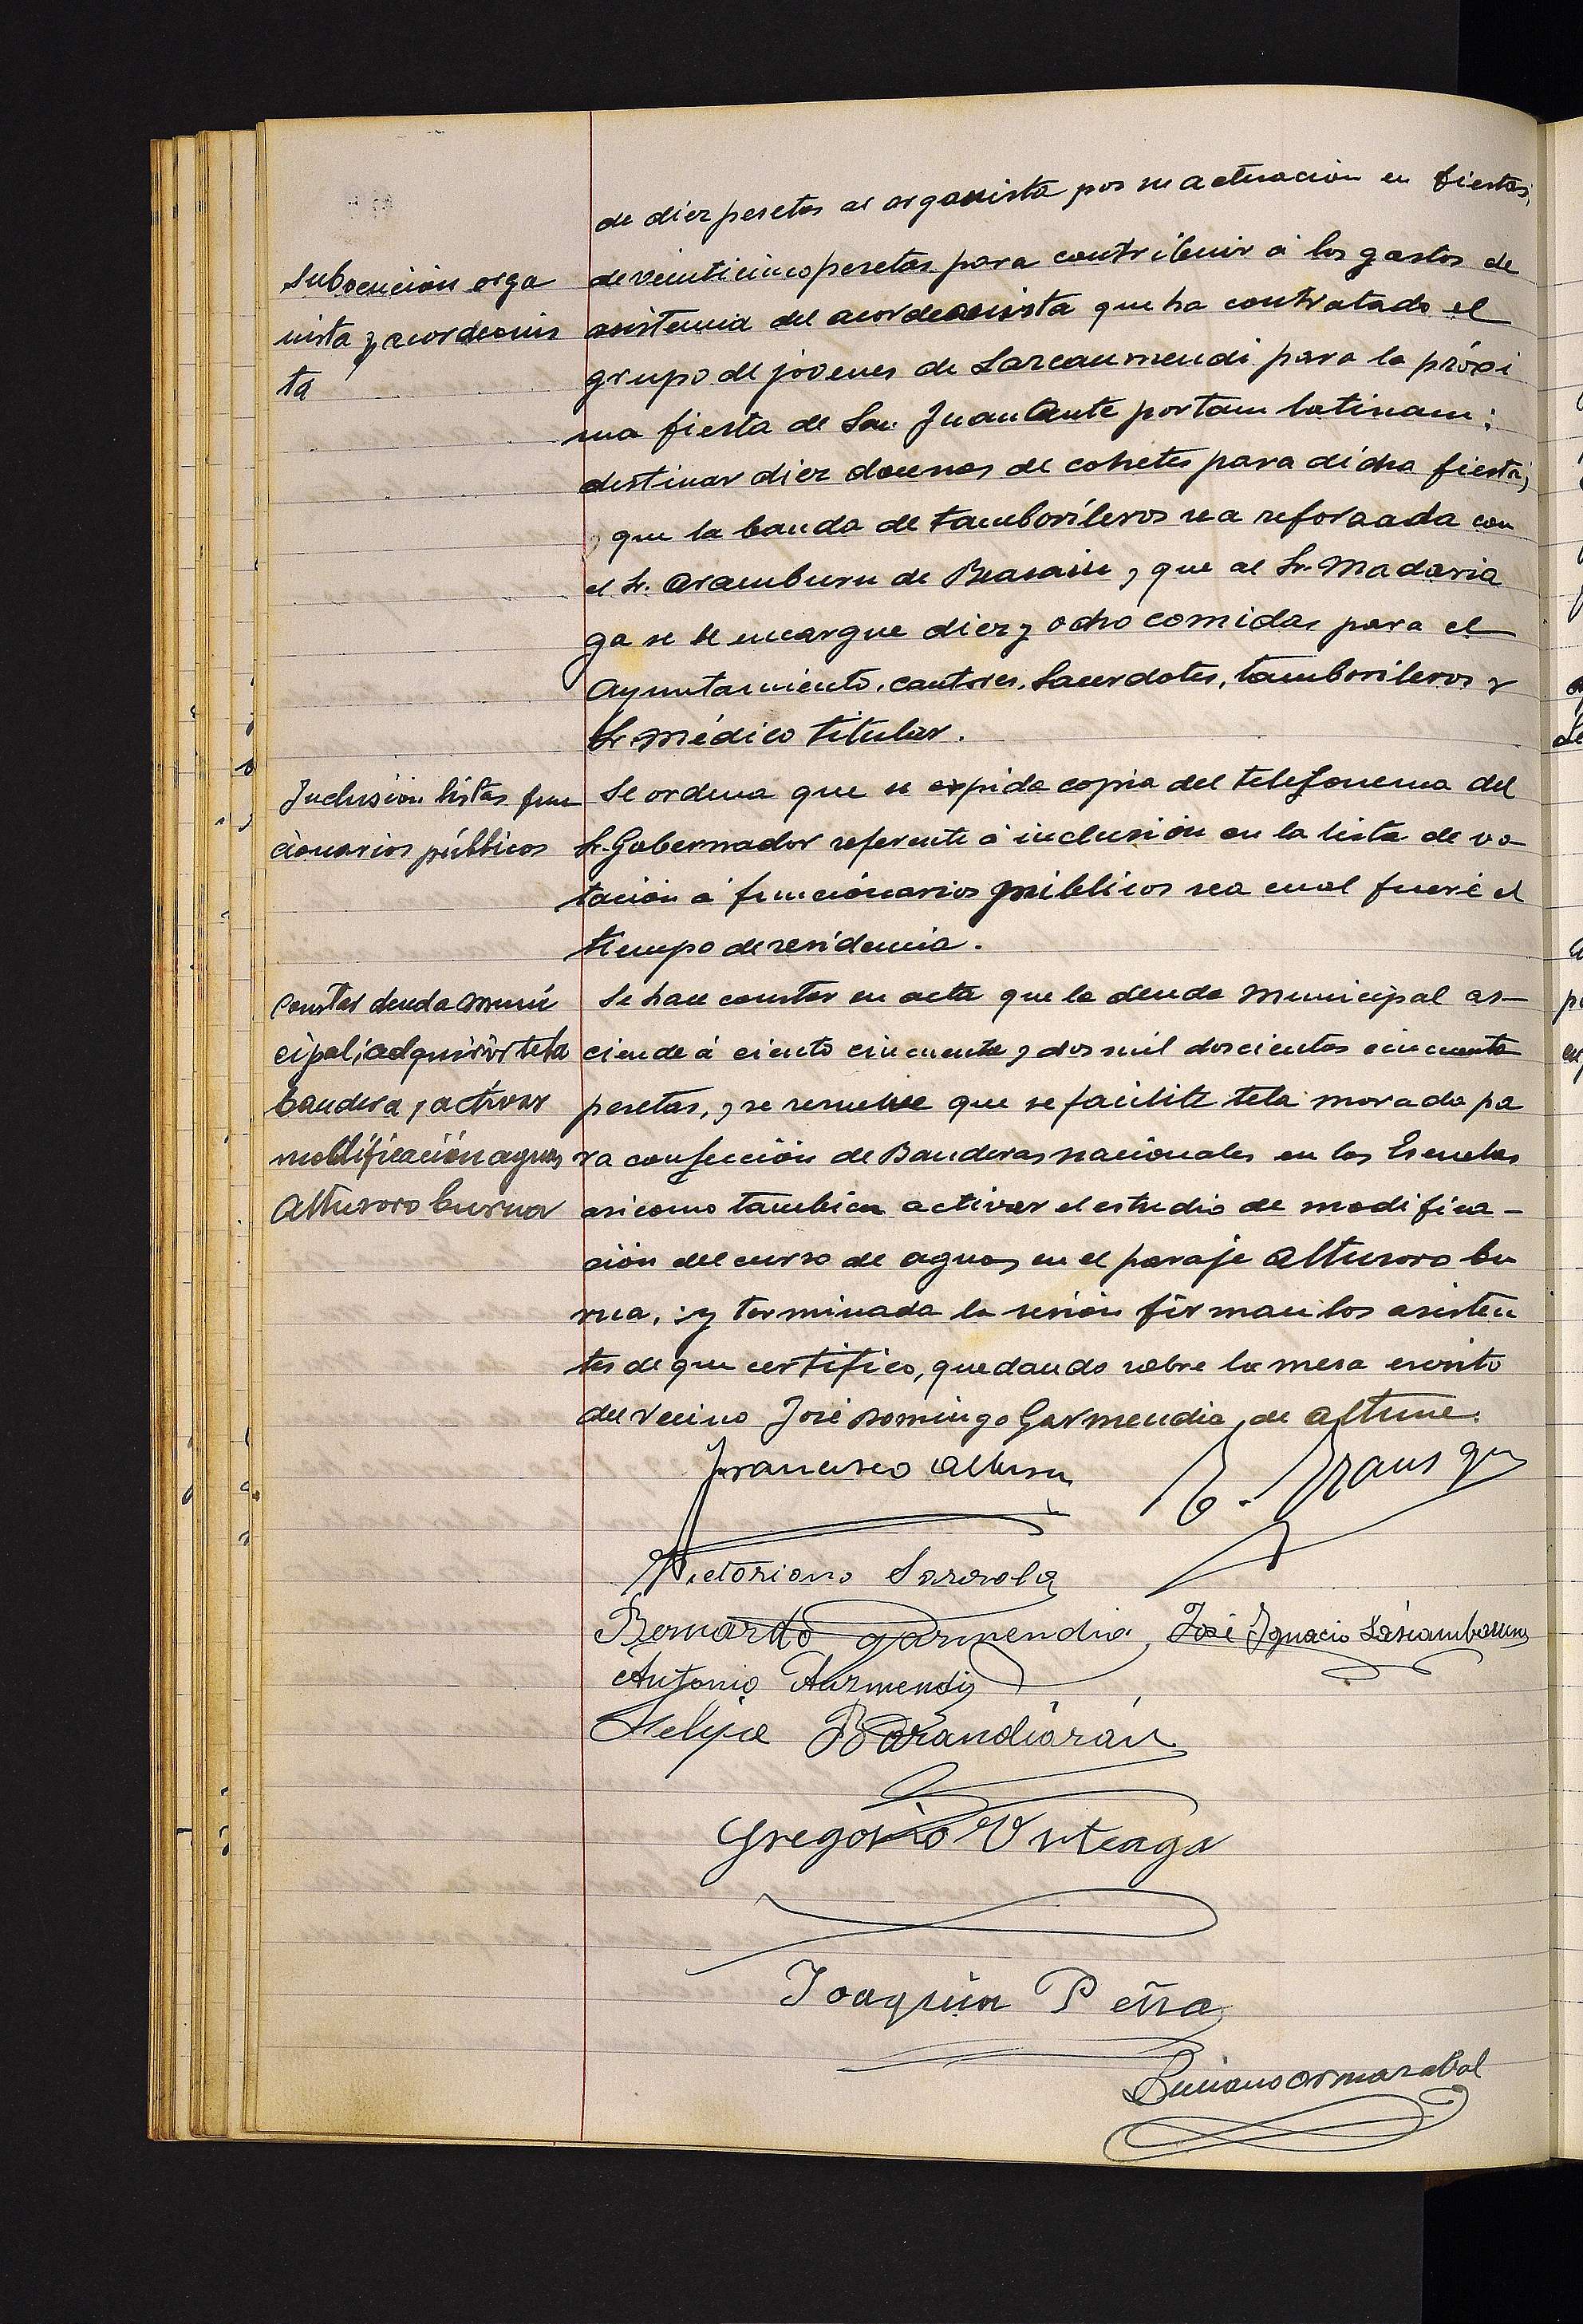 de diez pesetas al organista por su actuación en fiestas;
Subvención orga
nista y acordeonis
ta
de veinticinco pesetas para contribuir á los gastos de
asistencia del acordeonista que ha contratado el
grupo de jóvenes de Lazcaumendi para la próxi
ma fiesta de San Juan Ante portam latinam;
destinar diez docenas de cohetes para dicha fiesta;
y que la banda de tamborileros sea reforzada con
el Sr. Aramburu de Beasain y que al Sr. Madaria
ga se le encargue diez y ocho comidas para el
Ayuntamiento, cantores, Sacerdotes, tamborileros y
Sr. médico titular.
Inclusión listas fun
cionarios públicos
Se ordena que se expida copia del telefonema del
Sr. Gobernador referente á inclusión en la lista de vo-
tación á funcionarios públicos sea cual fuere el
tiempo de residencia.
Constar deuda muni
cipal; adquirir tela
bandera y activar
modificación aguas
Altusoro burua
Se hace constar en acta que la deuda municipal as-
ciende á ciento cincuenta y dos mil doscientas cincuenta
pesetas, y se resuelve que se facilite tela morada pa
ra confección de Banderas nacionales en las Escuelas
asi como tambien activar el estudio de modifica-
ción del curso de aguas en el paraje Altusoro bu
rua, y terminada la sesión firman los asisten
tes de que certifico, quedando sobre la mesa escrito
del vecino José Domingo Garmendia, de Altune.
Francisco Altuna
Victoriano Sarasola
Bernardo Garmendia José Ignacio Lascamburu
Antonio Armendi
Felipe Barandiarán
Gregorio Urteaga
Joaquin Peña
Luciano Ormazabal